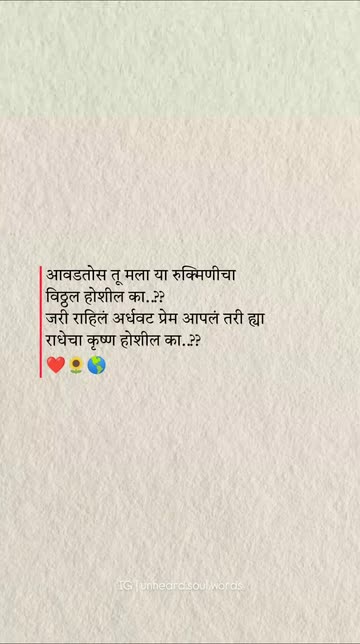 आवडतोस तू मला या रुक्मिणीचा
विठ्ठल होशील का..??
जरी राहिलं अर्धवट प्रेम आपलं तरी ह्या
राधेचा कृष्ण होशील का..??
❤️🌻🌎
IG | unheard.soul.words